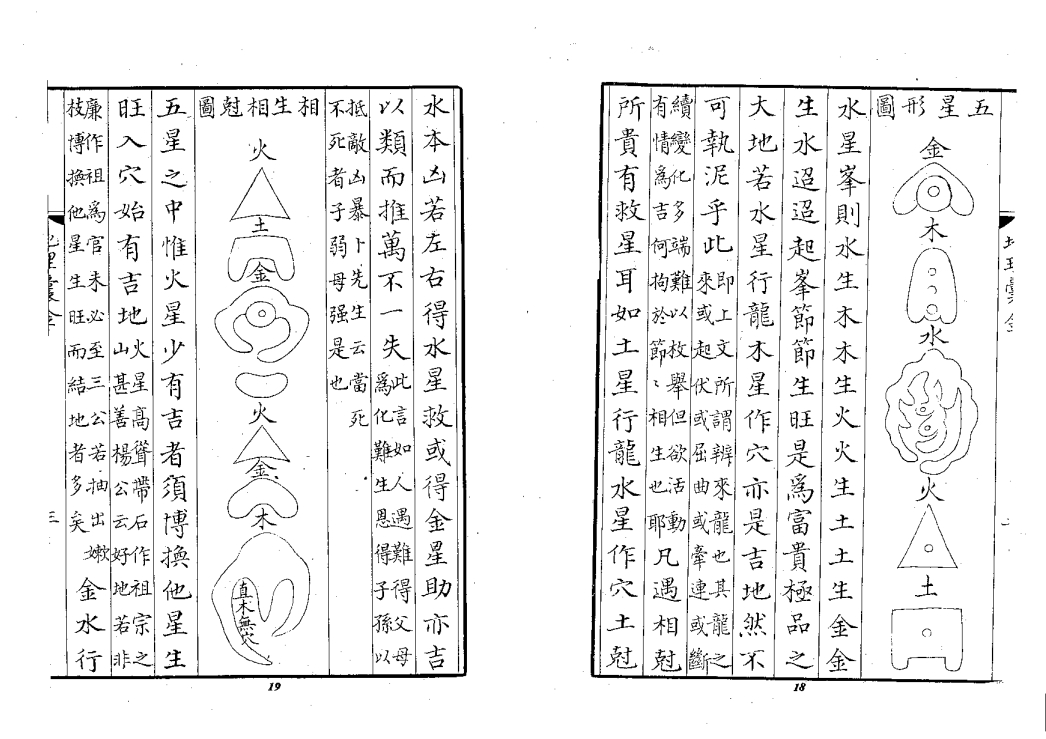 五星形圖
金
木
水
火
土
水星峯則水生木木生火火生土土生金金
生水迢迢起峯節節生旺是為富貴極品之
大地若水星行龍木星作穴亦是吉地然不
可執泥乎此即上文所謂辨來龍也其龍之
來或起伏或屈曲或牽連或斷
續變化多端難以枚舉但欲活動
有情為吉何拘於節〻相生也耶凡遇相尅
所貴有救星耳如土星行龍水星作穴土尅
18
水本凶若左右得水星救或得金星助亦吉
以類而推萬不一失此言如人遇難得父母
為化難生恩得子孫以
抵敵凶暴卜先生云當死
不死者子弱母强是也
相生相尅圖
火
土
金
火
金
木
直木無穴
五星之中惟火星少有吉者須博換他星生
旺入穴始有吉地火星高聳帶石作祖宗之
山甚善楊公云好地若非
廉作祖為官未必至三公若抽出嫩
枝博換他星生旺而結地者多矣金水行
三
19